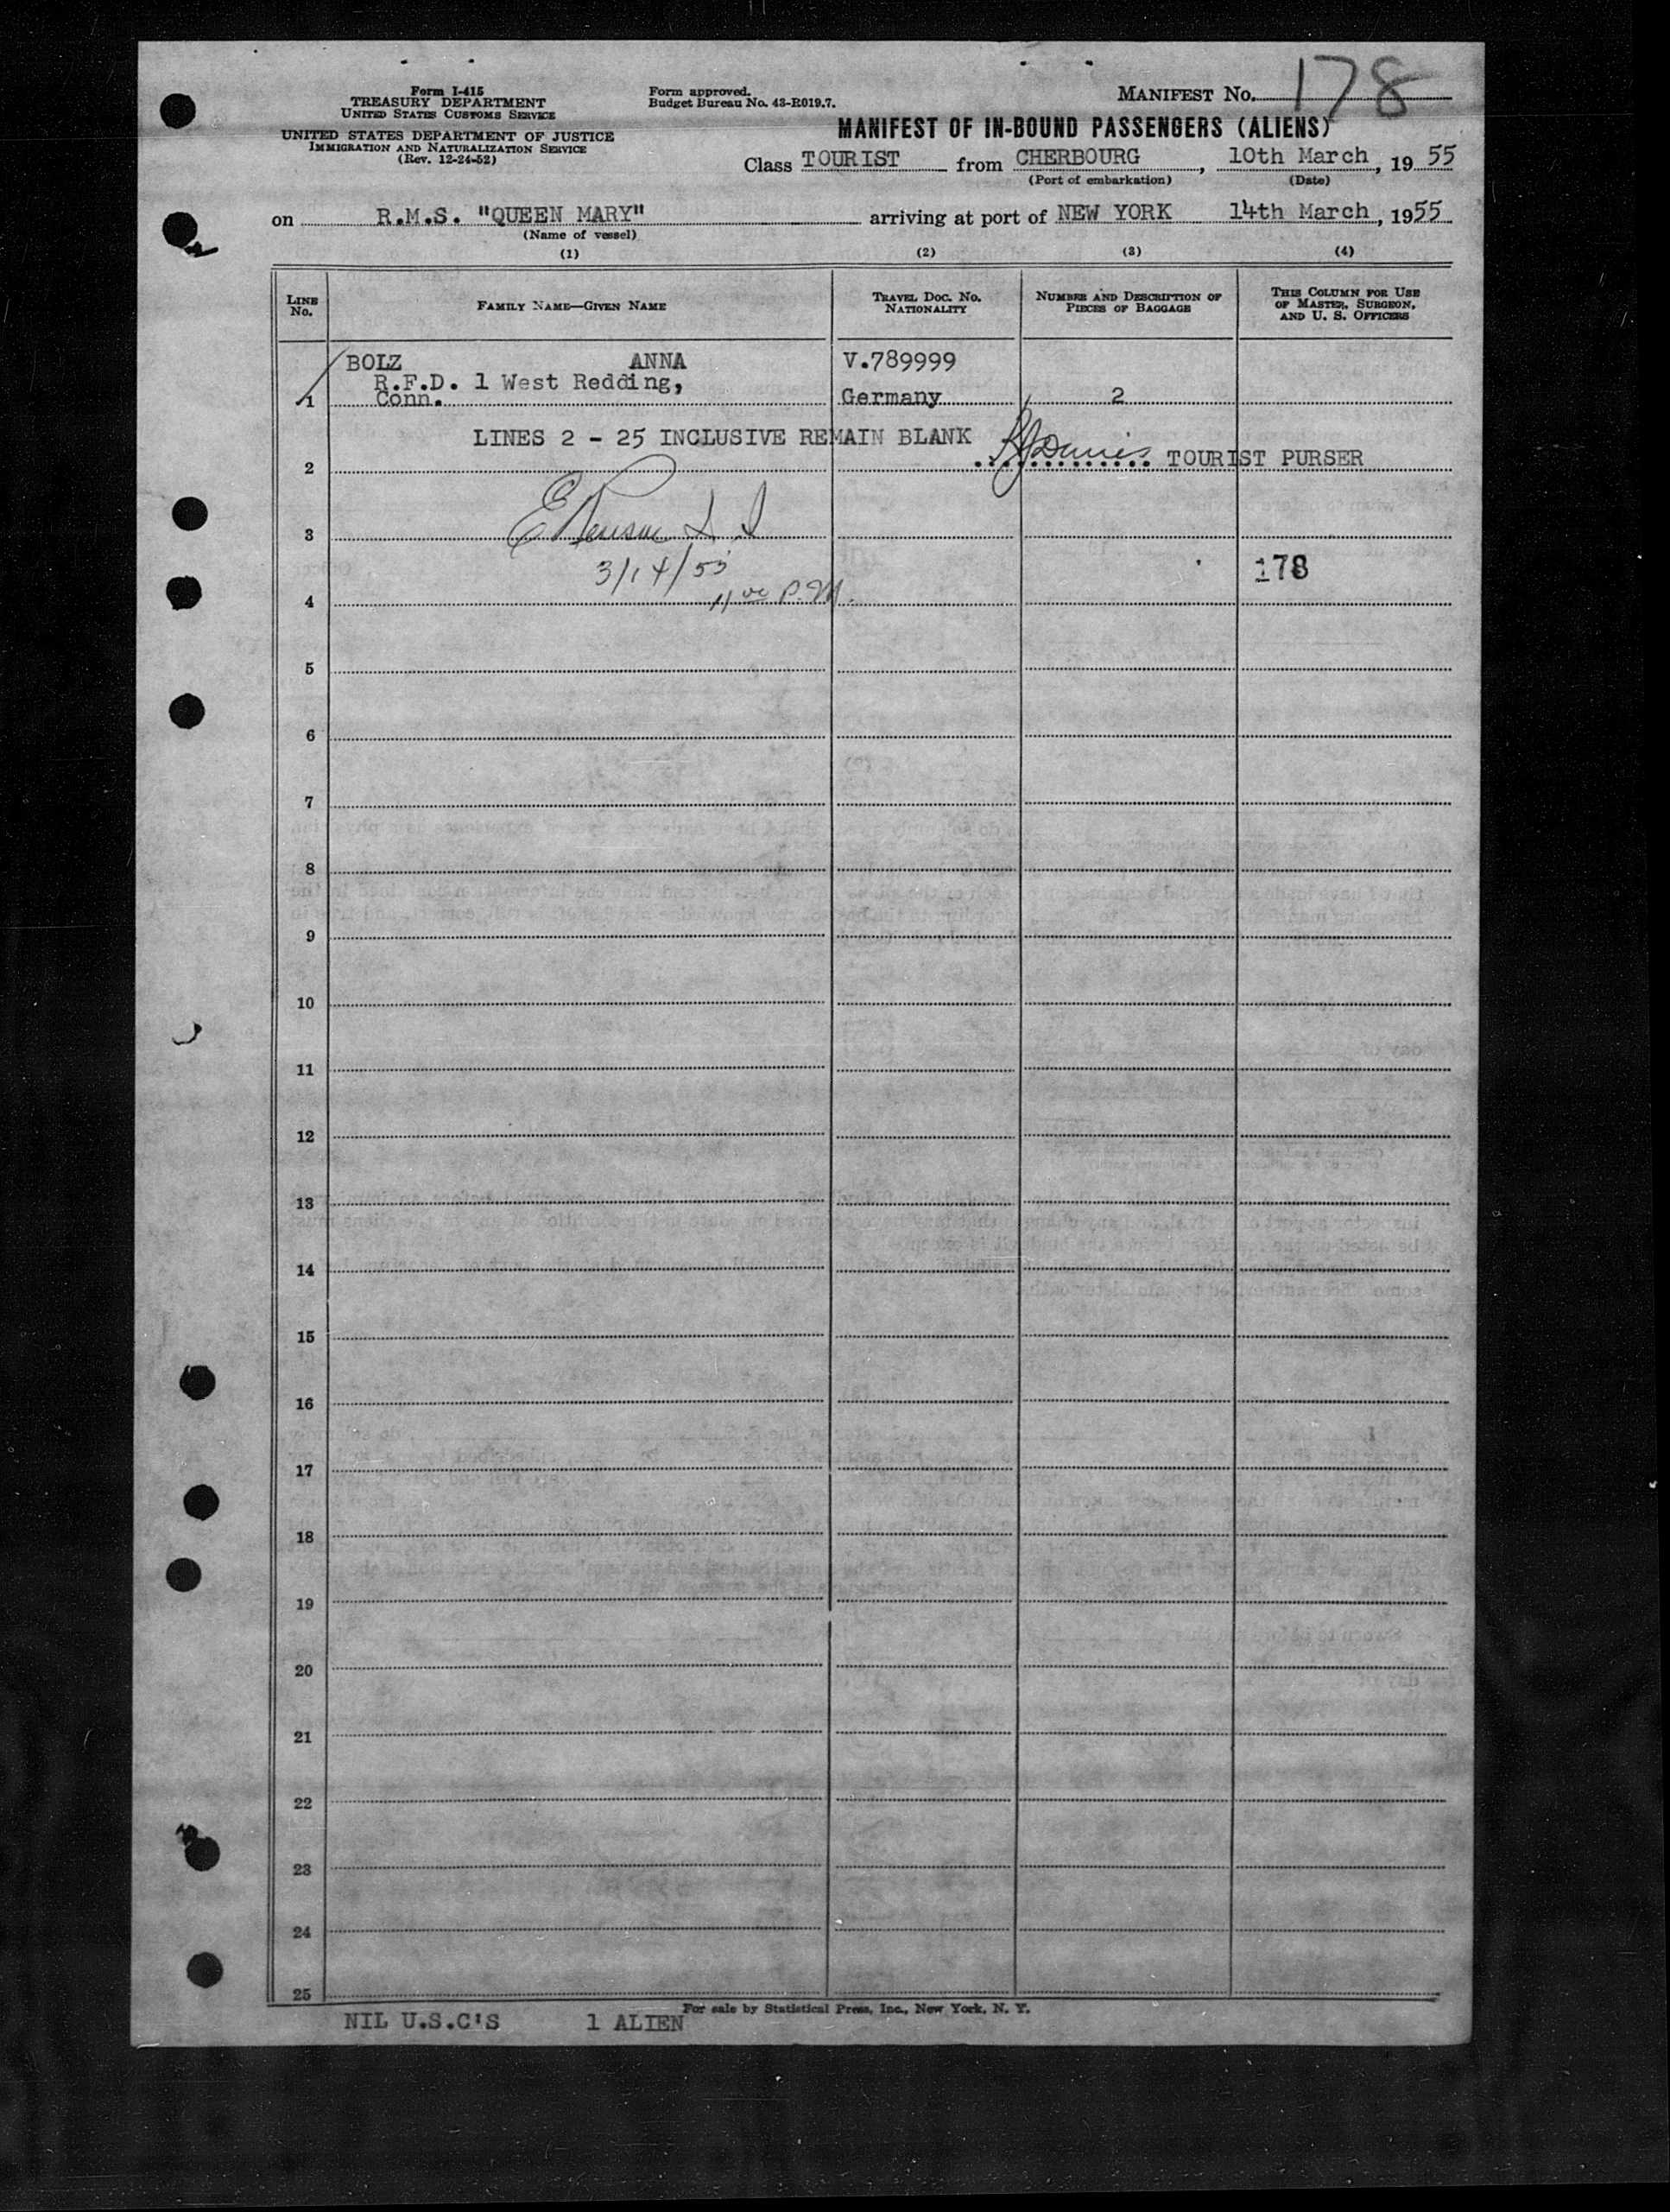 Form I-415
TREASURY DEPARTMENT
UNITED STATES CUSTOMS SERVICE
UNITED STATES DEPARTMENT OF JUSTICE
IMMIGRATION AND NATURALIZATION SERVICE
(Rev. 12-24-52)
Form approved.
Budget Bureau No. 43-R019.7.
MANIFEST No. 178
MANIFEST OF IN-BOUND PASSENGERS (ALIENS)
Class TOURIST from CHERBOURG, 10th March, 19 55
(Port of embarkation) (Date)
on R.M.S. "QUEEN MARY" arriving at port of NEW YORK 14th March, 1955
(Name of vessel)
(1) (2) (3) (4)
LINE No. FAMILY NAME—GIVEN NAME TRAVEL DOC. No. NATIONALITY NUMBER AND DESCRIPTION OF PIECES OF BAGGAGE THIS COLUMN FOR USE OF MASTER, SURGEON, AND U. S. OFFICERS
BOLZ ANNA V.789999
R.F.D. 1 West Redding,
1 Conn. Germany 2
LINES 2 - 25 INCLUSIVE REMAIN BLANK
2 TOURIST PURSER
3
3/14/55 178
4 11 00 P.M.
5
6
7
8
9
10
11
12
13
14
15
16
17
18
19
20
21
22
23
24
25
For sale by Statistical Press, Inc., New York, N. Y.
NIL U.S.C'S 1 ALIEN